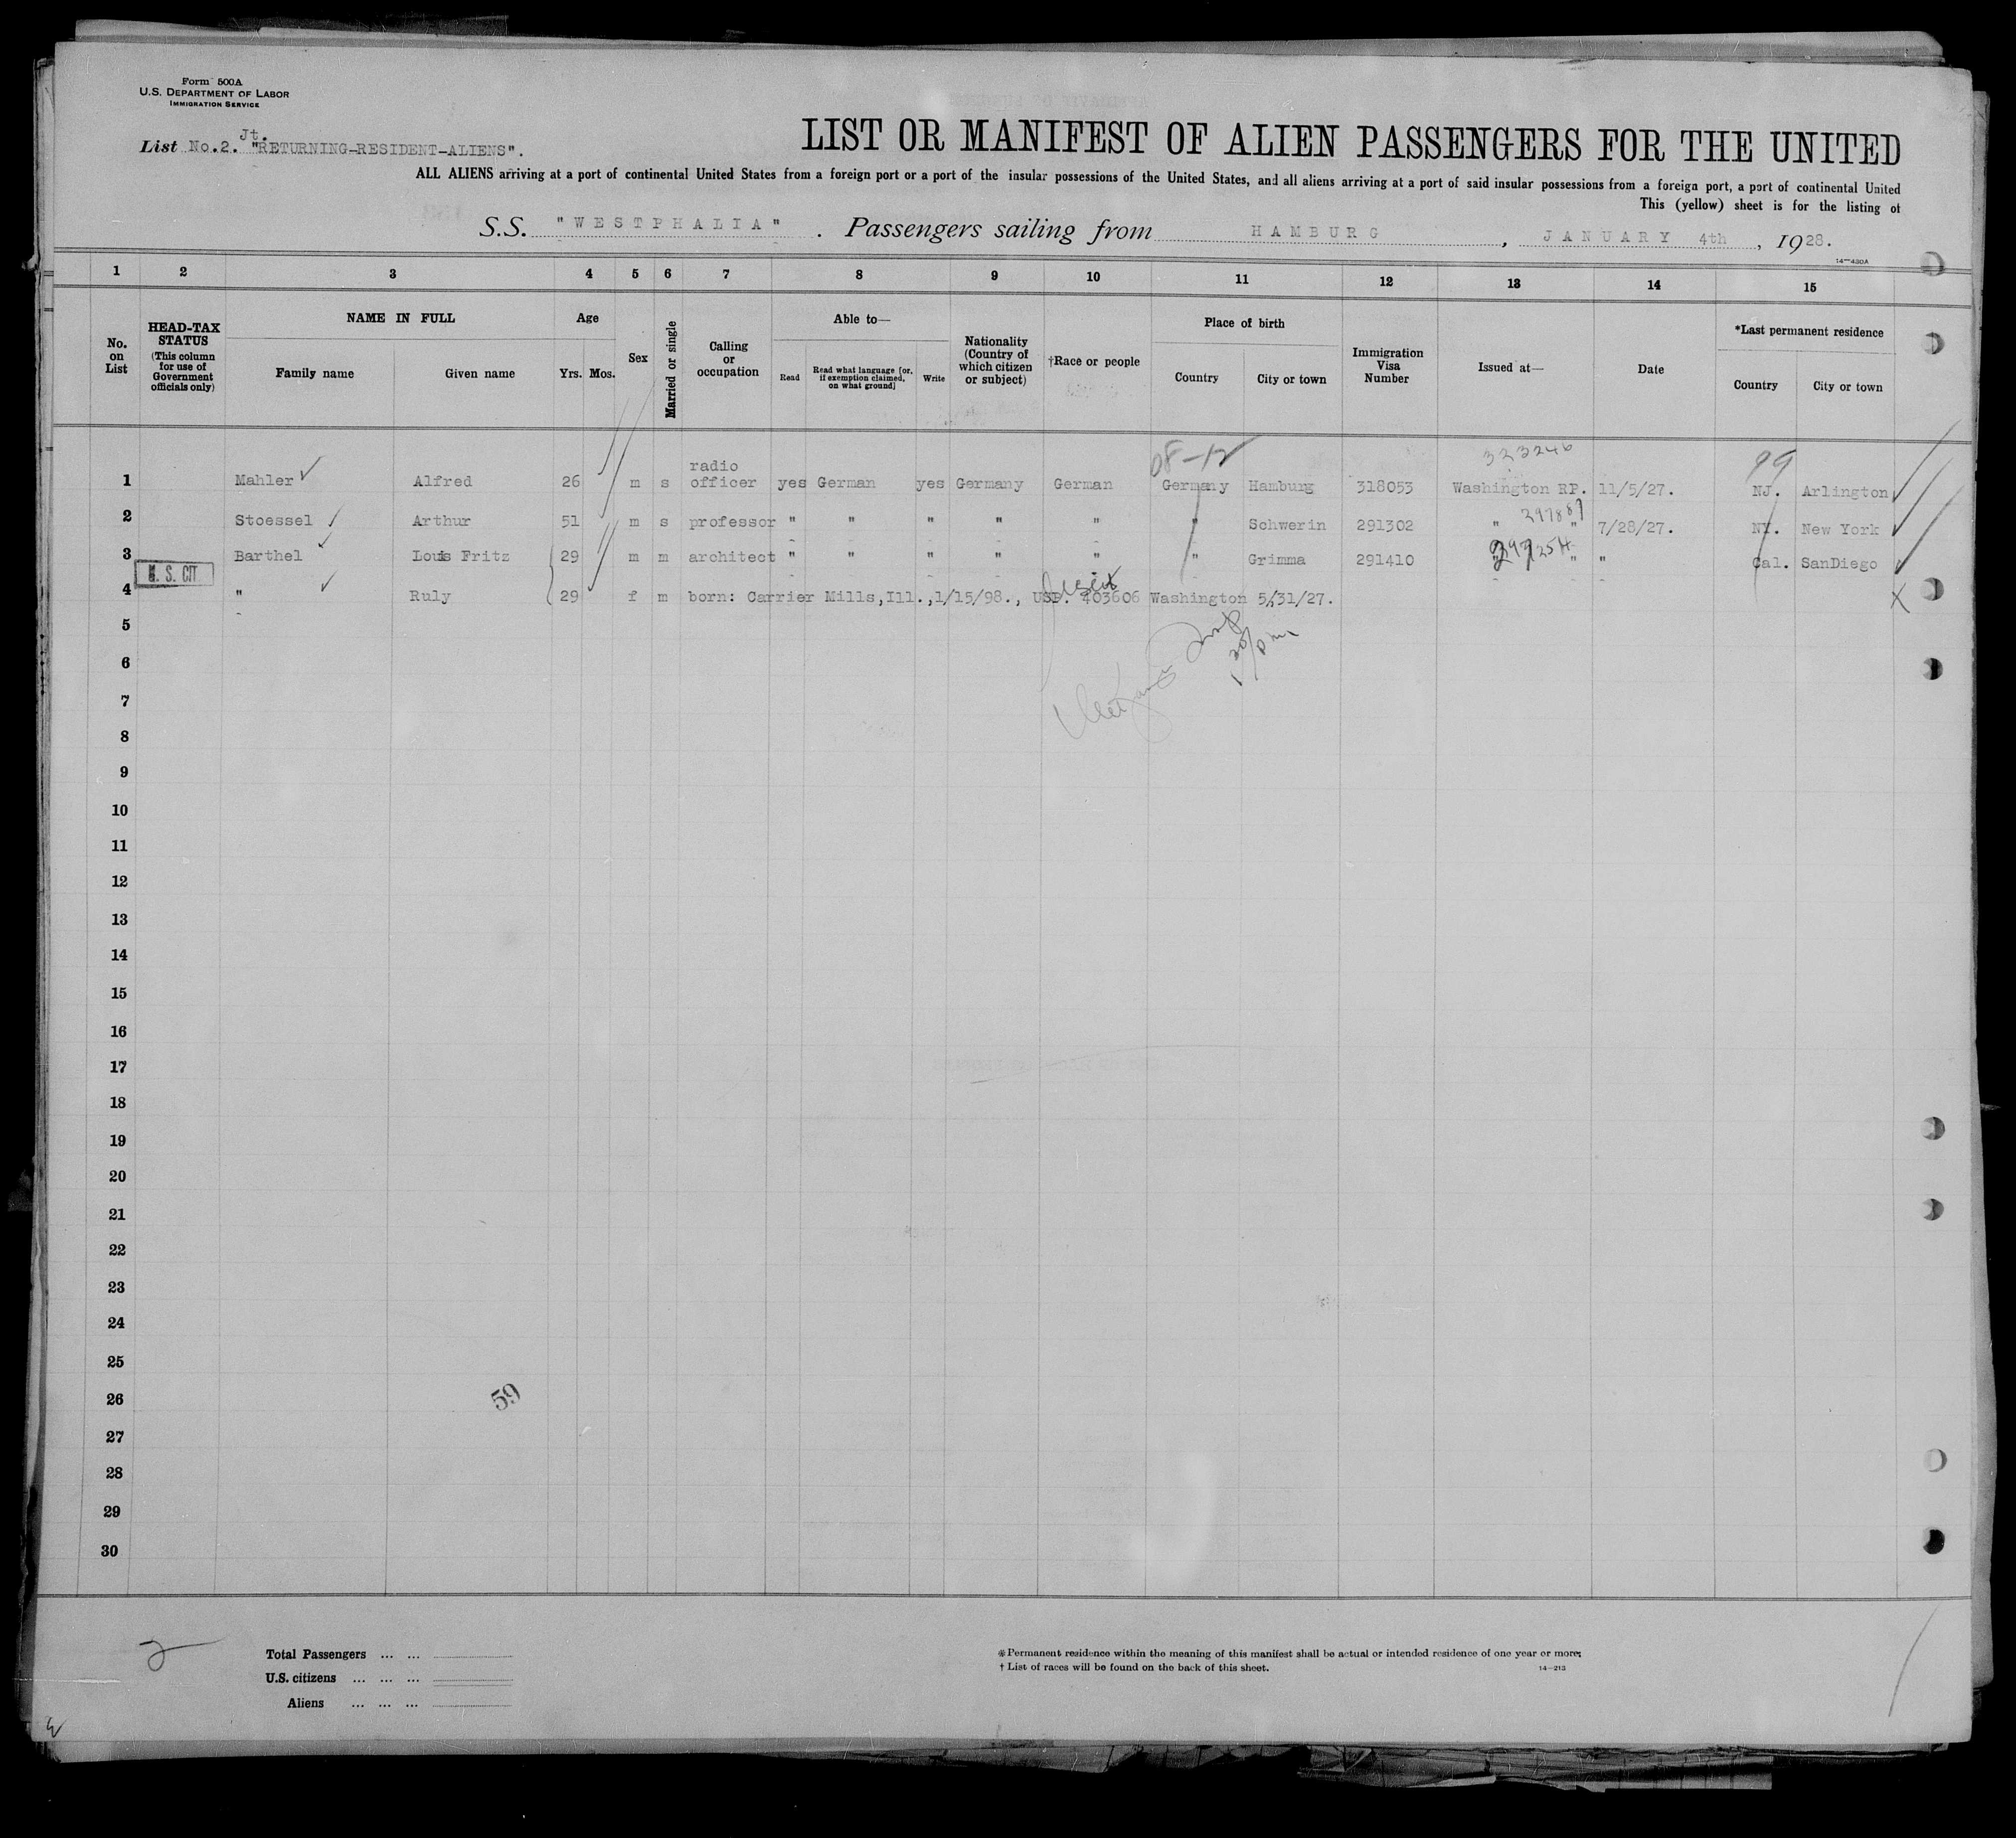 Form 500A
U.S. DEPARTMENT OF LABOR
IMMIGRATION SERVICE
Jt.
List No.2. "RETURNING-RESIDENT-ALIENS".
LIST OR MANIFEST OF ALIEN PASSENGERS FOR THE UNITED
ALL ALIENS arriving at a port of continental United States from a foreign port or a port of the insular possessions of the United States, and all aliens arriving at a port of said insular possessions from a foreign port, a port of continental United
This (yellow) sheet is for the listing of
S.S. "WESTPHALIA". Passengers sailing from HAMBURG, JANUARY 4th, 1928.
14—430A
1 2 3 4 5 6 7 8 9 10 11 12 13 14 15
No. on List
HEAD-TAX STATUS (This column for use of Government officials only)
NAME IN FULL
Family name
Given name
Age
Yrs. Mos.
Sex
Married or single
Calling or occupation
Able to—
Read
Read what language [or, if exemption claimed, on what ground]
Write
Nationality (Country of which citizen or subject)
†Race or people
Place of birth
Country
City or town
Immigration Visa Number
Issued at—
Date
*Last permanent residence
Country
City or town
08-12 323246 99
1 Mahler Alfred 26 m s radio officer yes German yes Germany German Germany Hamburg 318053 Washington RP. 11/5/27. NJ. Arlington
2 Stoessel Arthur 51 m s professor " " " " " " Schwerin 291302 " 297887 " 7/28/27. NY. New York
3 Barthel Louis Fritz 29 m m architect " " " " " " Grimma 291410 " " " Cal. SanDiego
U. S. CIT
4 " Ruly 29 f m born: Carrier Mills,Ill.,1/15/98., USP. 403606 Washington 5/31/27.
X
5
6
7
8
9
10
11
12
13
14
15
16
17
18
19
20
21
22
23
24
25
26
59
27
28
29
30
2
Total Passengers ... ...
U.S. citizens ... ... ...
Aliens ... ... ...
*Permanent residence within the meaning of this manifest shall be actual or intended residence of one year or more.
† List of races will be found on the back of this sheet.
14—213